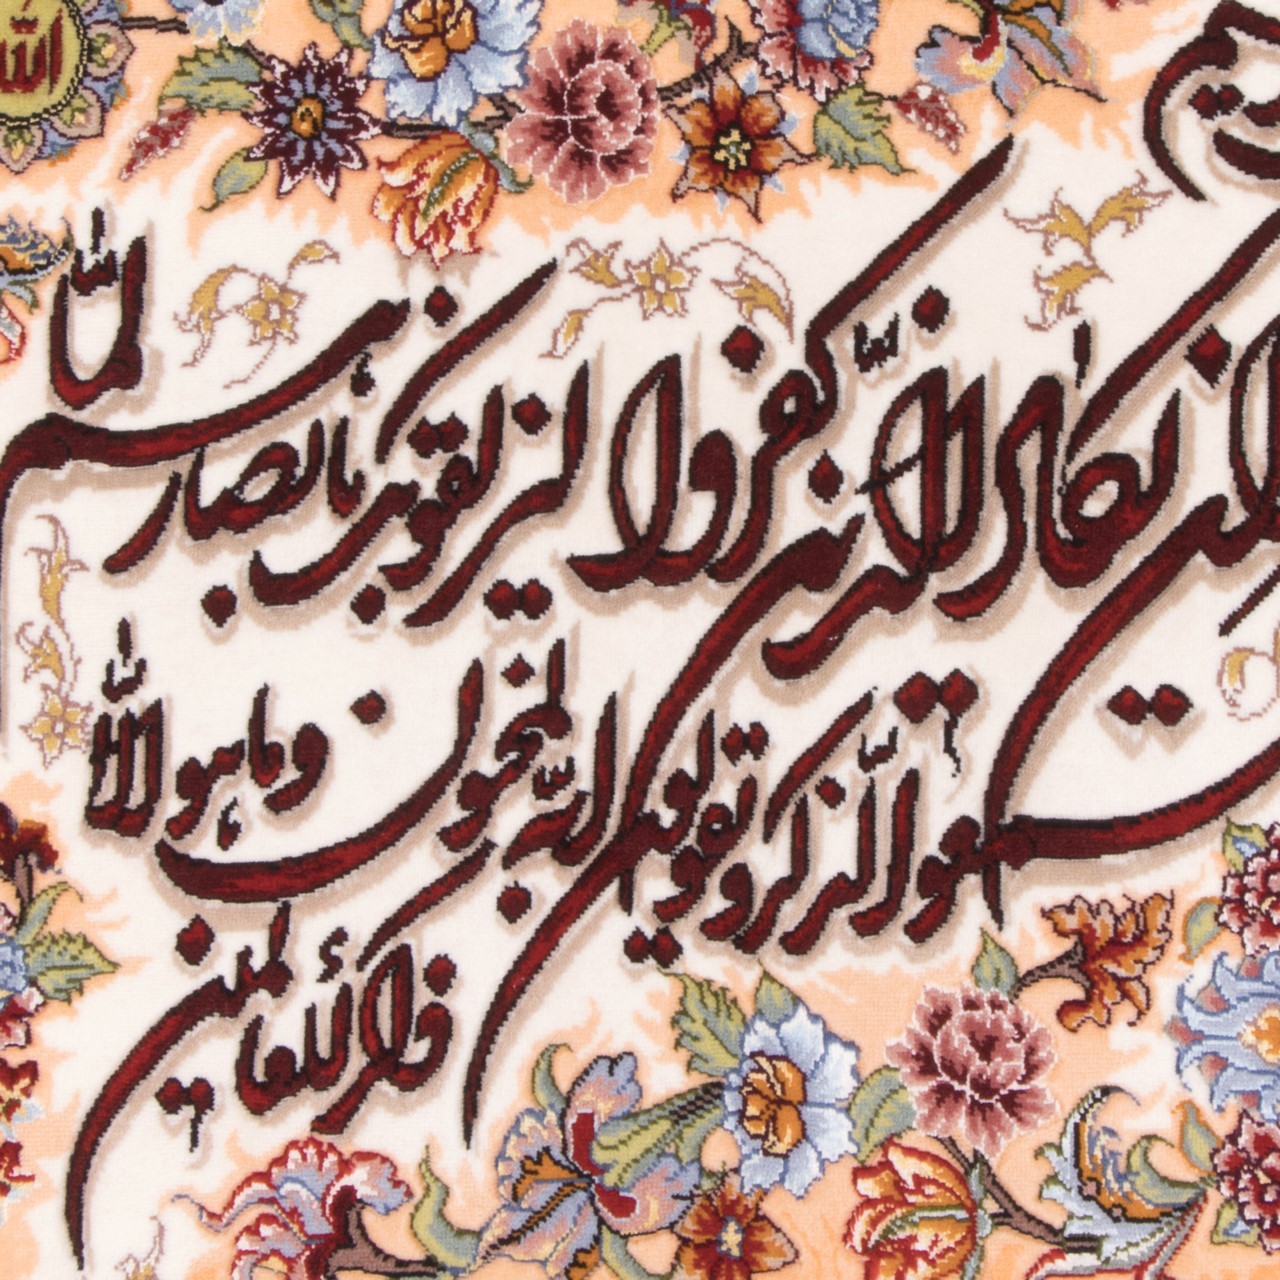 الله
وان یکاد الذین کفروا لیزلقونک بابصارهم لما
سمعوا الذکر و یقولون انه لمجنون و ما هو الا
ذکر للعالمین